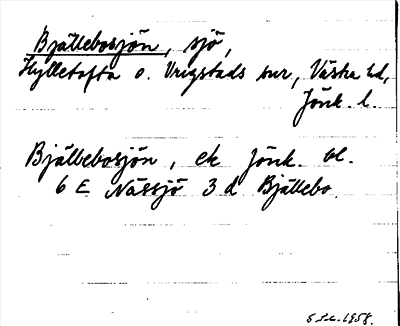 Bjällebosjön, sjö,
Hylletofta o. Vrigstads snr, Västra hd,
Jönk. l.
Bjällebosjön, ek Jönk. bl.
6 E Nässjö 3 d Bjällebo.
1958.